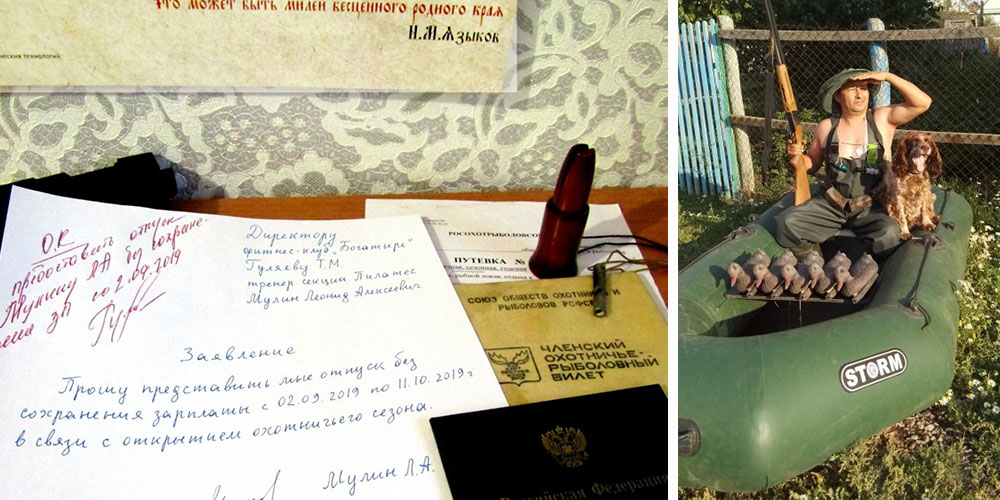 это может быть милей бесценного родного края
Н.М.Языков
О.К.
предоставить отпуск
Мулину ЛА без сохране-
ния ЗП со 2.09.2019
Директору
фитнес-клуб „Богатырь"
Гуляеву Т.М.
тренер секции Пилатес
Мулин Леонид Алексеевич
Заявление
Прошу представить мне отпуск без
сохранения зарплаты с 02.09.2019 по 11.10.2019г
в связи с открытием охотничьего сезона.
Мулин Л.А.
РОСОХОТРЫБОЛОВСОЮЗ
ПУТЕВКА №
СОЮЗ ОБЩЕСТВ ОХОТНИКОВ И
РЫБОЛОВОВ РСФСР
ЧЛЕНСКИЙ
ОХОТНИЧЬЕ-
РЫБОЛОВНЫЙ
БИЛЕТ
Российская Федерация
STORM